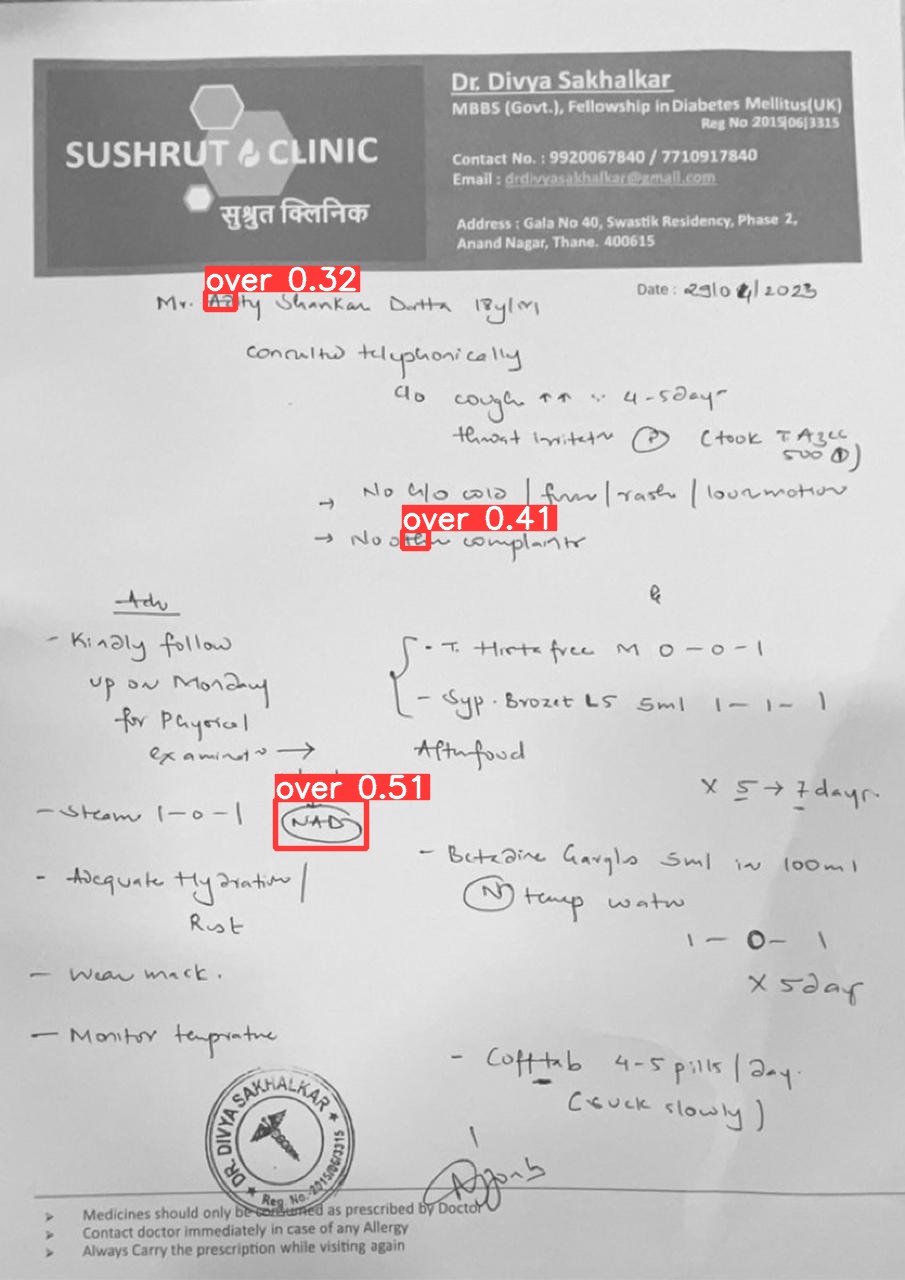 SUSHRUT CLINIC
सुश्रुत क्लिनिक
Dr. Divya Sakhalkar
MBBS (Govt.), Fellowship in Diabetes Mellitus(UK)
Reg No 2015|06|3315
Contact No. : 9920067840 / 7710917840
Email : drdivyasakhalkar@gmail.com
Address : Gala No 40, Swastik Residency, Phase 2,
Anand Nagar, Thane. 400615
over 0.32
Date : 29/04/2023
Mr. Shankar Dutta 18y/M
Consulted telephonically
C/o cough ↑↑ 4-5days
throat irritatn (P) (took T Azee
500 (1))
→ No C/o cold / fever / rash / loosemotion
over 0.41
→ No other complaints
Adv
- Kindly follow
up on Monday
for Physical
examinatn →
over 0.51
NAD
- Steam 1-0-1
- Adequate Hydration /
Rest
- Wear mask.
- Monitor temprature
- T. Histafree M 0-0-1
- Syp. Brozet LS 5ml 1-1-1
After food
X 5 → 7 days.
- Betadine Gargles 5ml in 100ml
(N) temp water
1-0-1
X 5 day
- Cofftab 4-5 pills / day.
(suck slowly)
DR. DIVYA SAKHALKAR
Reg. No.-2015/06/3315
➢ Medicines should only be consumed as prescribed by Doctor
➢ Contact doctor immediately in case of any Allergy
➢ Always Carry the prescription while visiting again